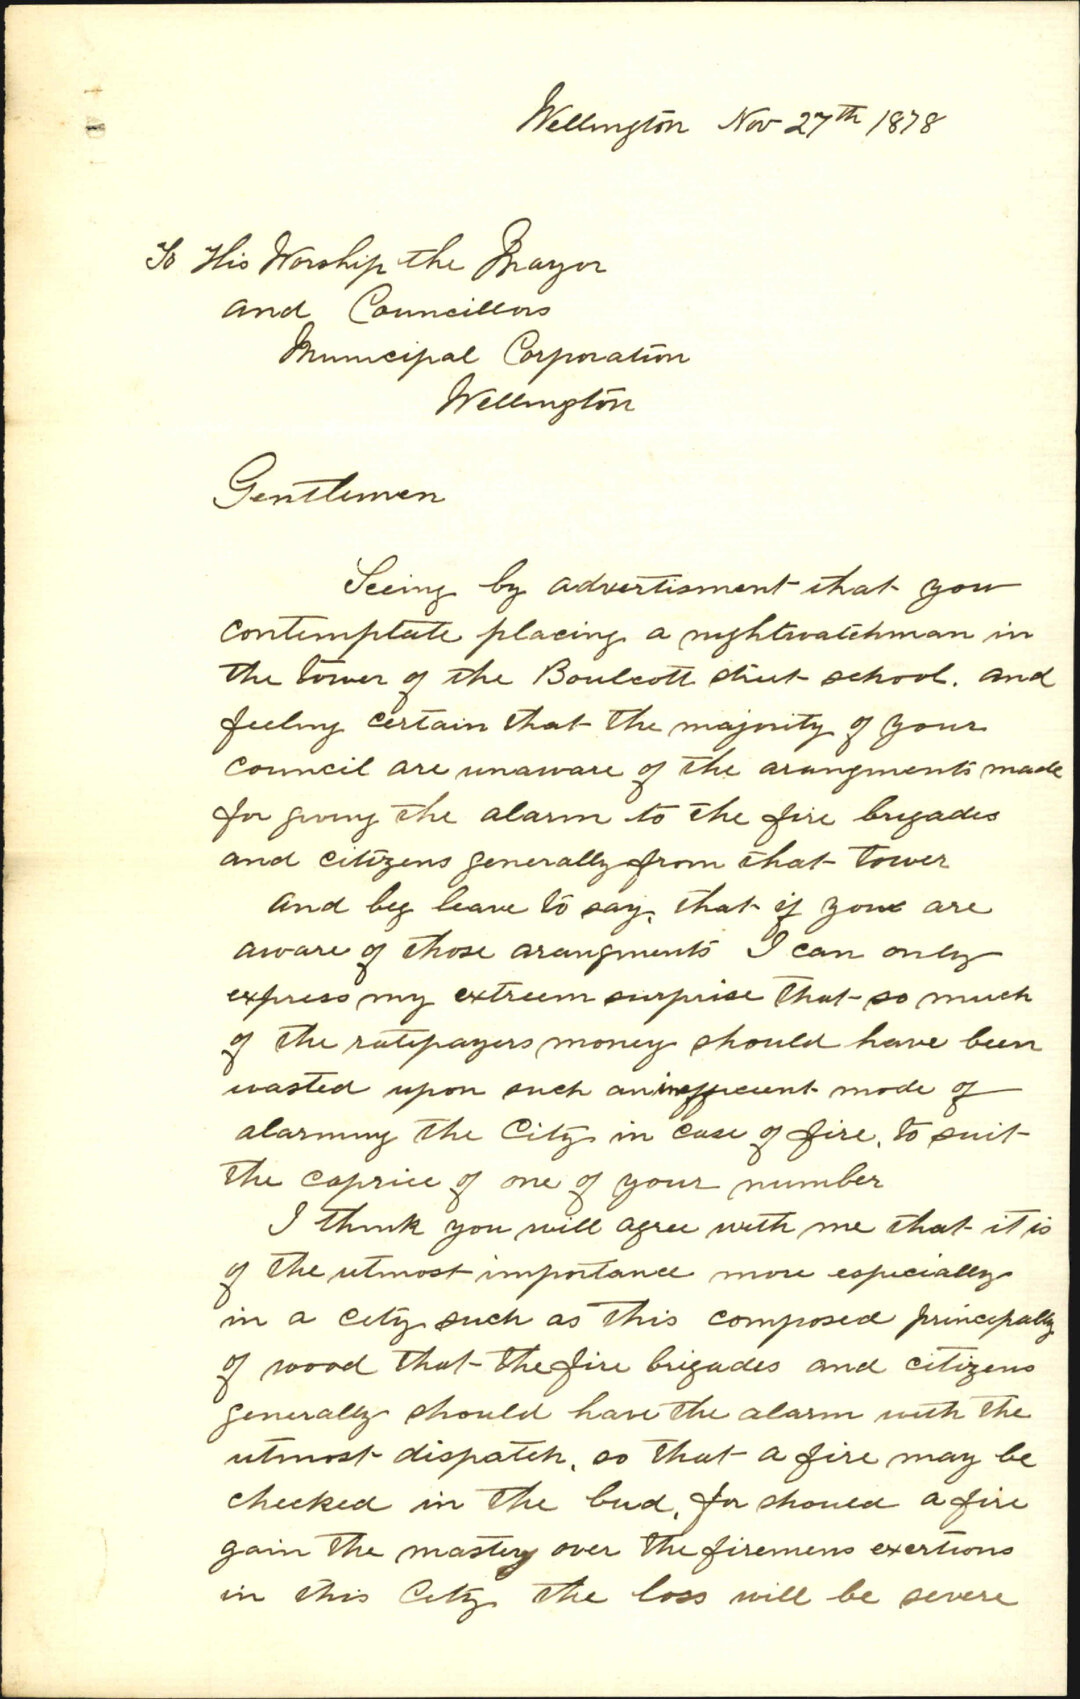 Wellington Nov 27th 1878
To His Worship the Mayor
and Councillors
Municipal Corporation
Wellington
Gentlemen
Seeing by advertisment that you
contemplate placing a nightwatchman in
the tower of the Boulcott street school. and
feeling certain that the majority of your
council are unaware of the arangments made
for giving the alarm to the fire brigades
and citizens generally from that tower
and beg leave to say, that if you are
aware of those arangments I can only
express my extreem surprise that so much
of the ratepayers money should have been
wasted upon such an inefficient mode of
alarming the City in case of fire, to suit
the caprice of one of your number
I think you will agree with me that it is
of the utmost importance more especially
in a city such as this composed principally
of wood that the fire brigades and citizens
generally should have the alarm with the
utmost dispatch, so that a fire may be
checked in the bud, for should a fire
gain the mastery over the firemens exertions
in this City the loss will be severe